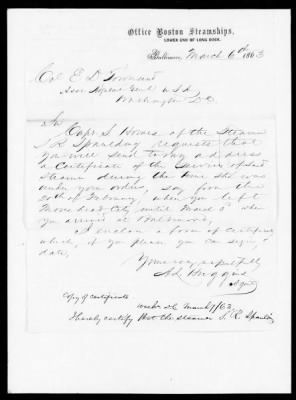 Office Boston Steamships,
LOWER END OF LONG DOCK.
Baltimore, March 6th 1863
Col E D Townsend
Asst Adjutant Genl U S A
Washington D.C.
Sir
Capt S Howes of the Steamer
S R Spaulding requests that
you will send to my address
a Certificate of the service of said
Steamer during the time she was
under your orders, say from the
20th of February, when you left
Morehead City until March 5th when
you arrived at Baltimore.
I enclose a form of certificate
which, if you please, you can sign &
date,
Yours very respectfully
Agent
Copy of certificate
March 7/63.
I hereby certify that the steamer S. R. Spaulding